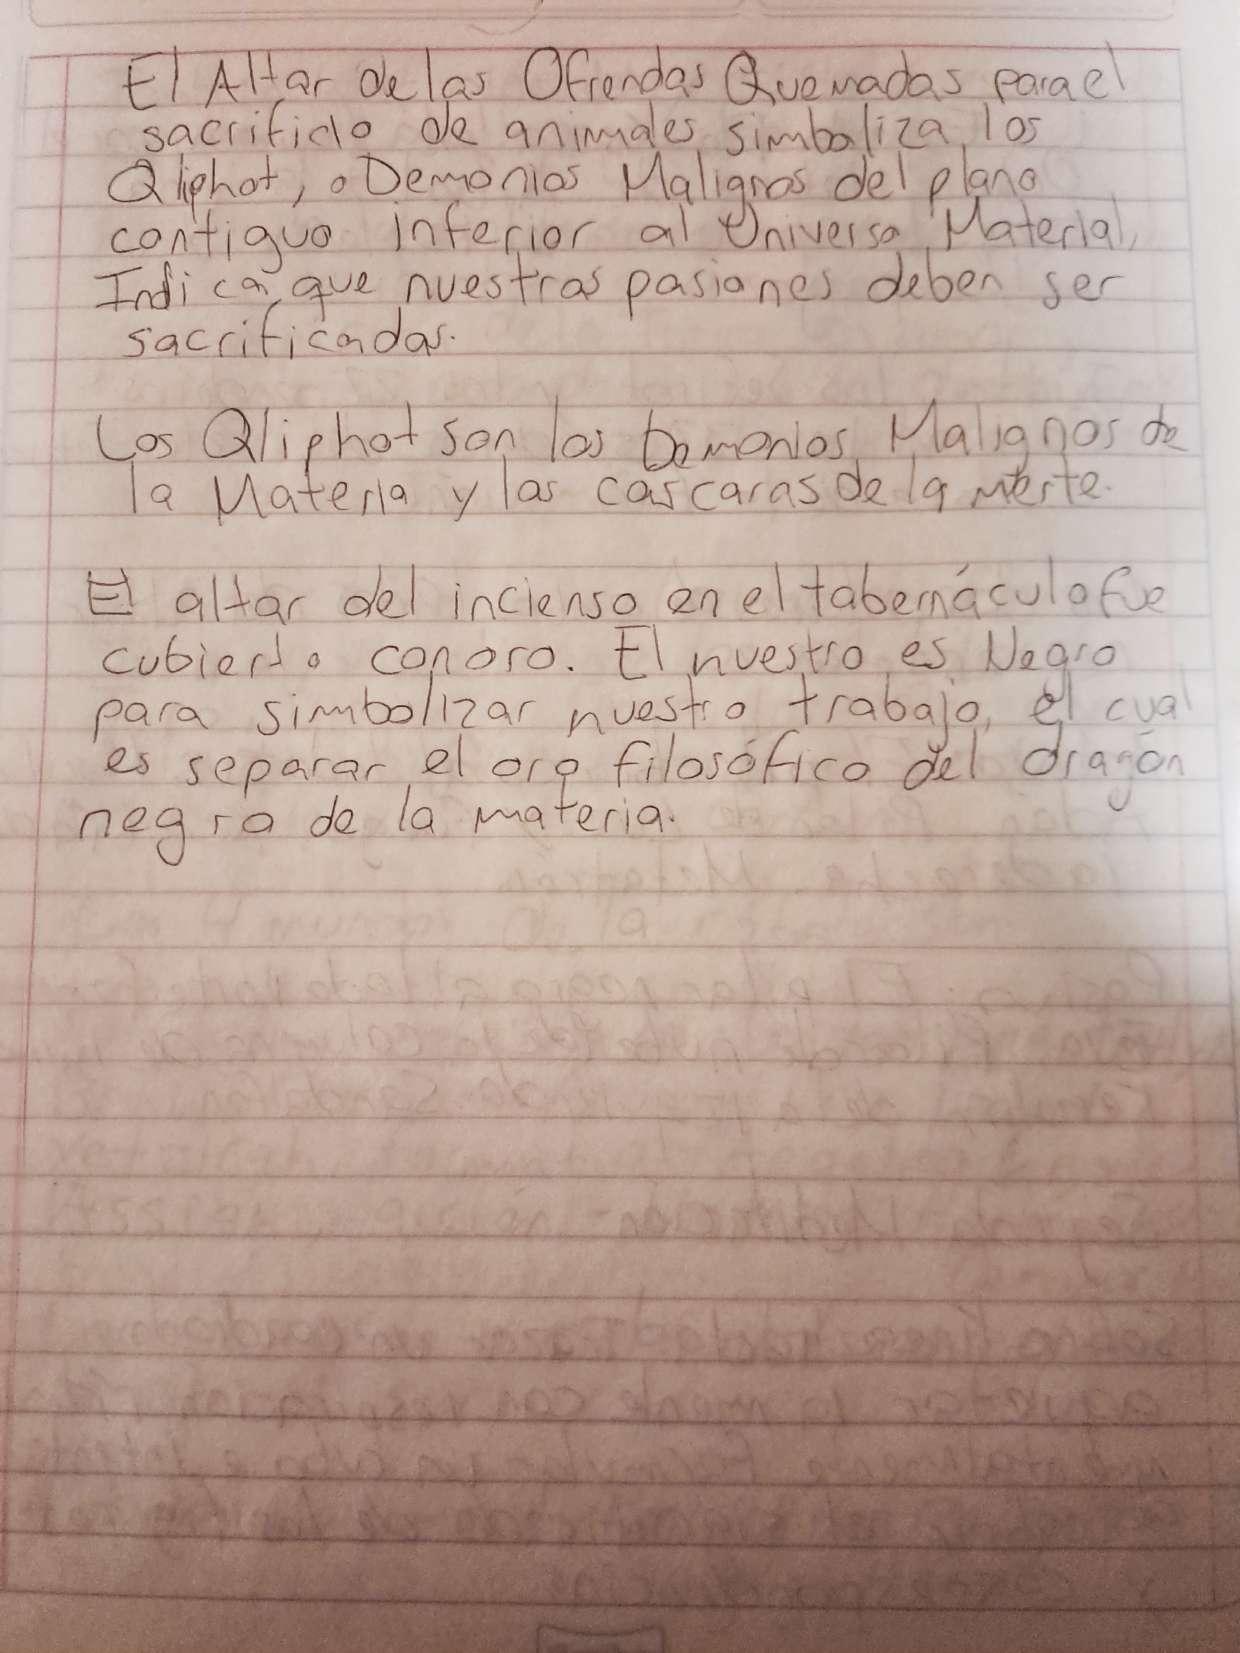 El Altar de las Ofrendas Quemadas para el
sacrificio de animales simboliza los
Qliphot, o Demonios Malignos del plano
contiguo inferior al Universo Material,
Indica que nuestras pasiones deben ser
sacrificadas.
Los Qliphot son los Demonios Malignos de
la Materia y las cascaras de la merte.
El altar del incienso en el tabernáculo fue
cubierto con oro. El nuestro es Negro
para simbolizar nuestro trabajo, el cual
es separar el oro filosófico del dragón
negro de la materia.